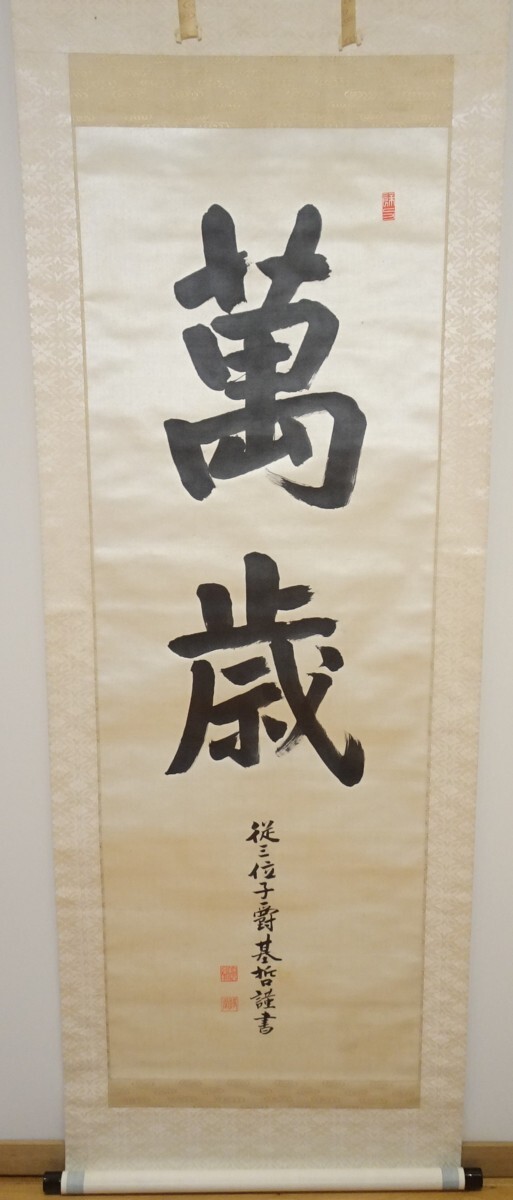 萬歳
従三位子爵基哲謹書